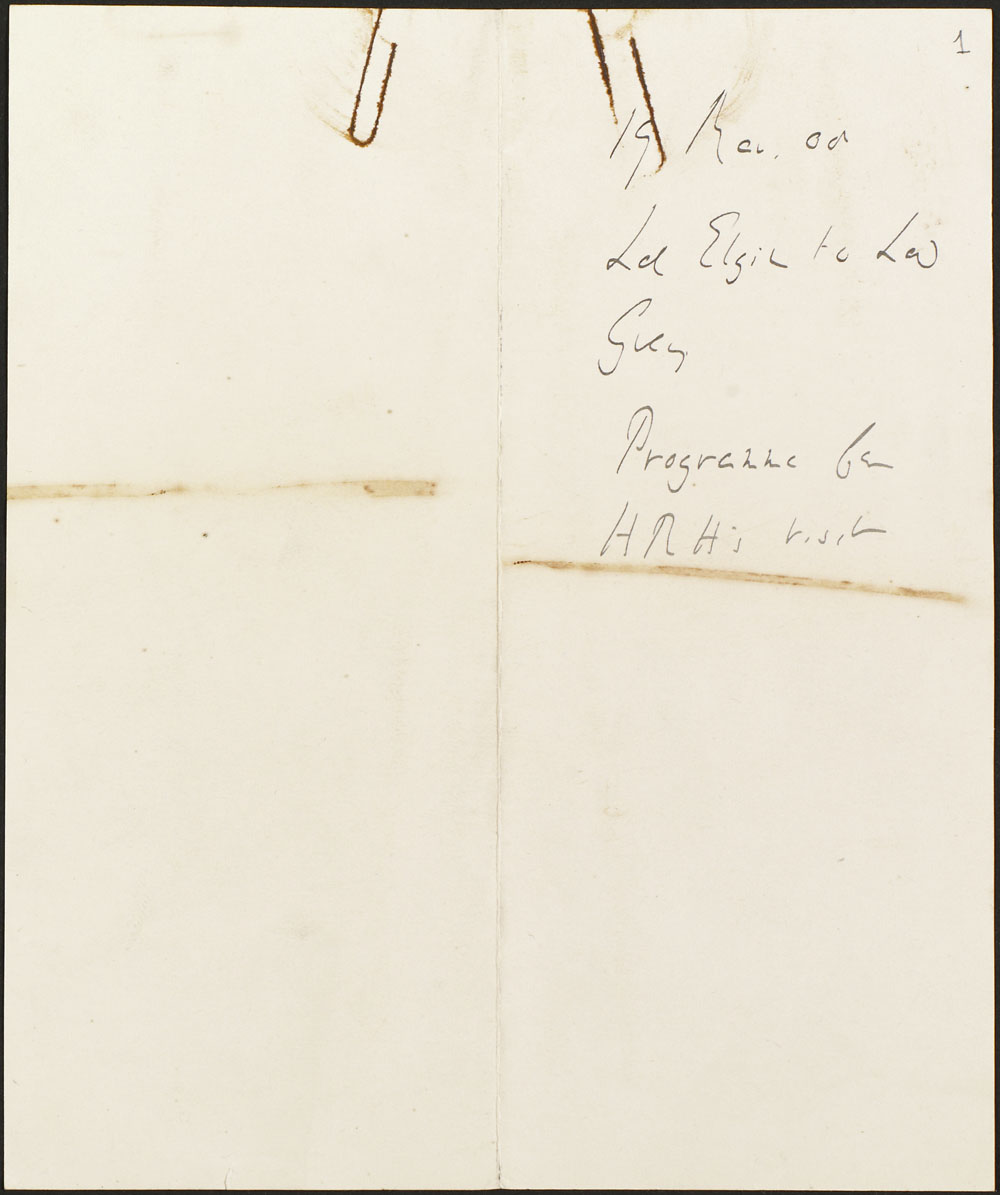 1
19 Mar. 08
Ld Elgin to Ld
Grey
Programme for
HRH's visit